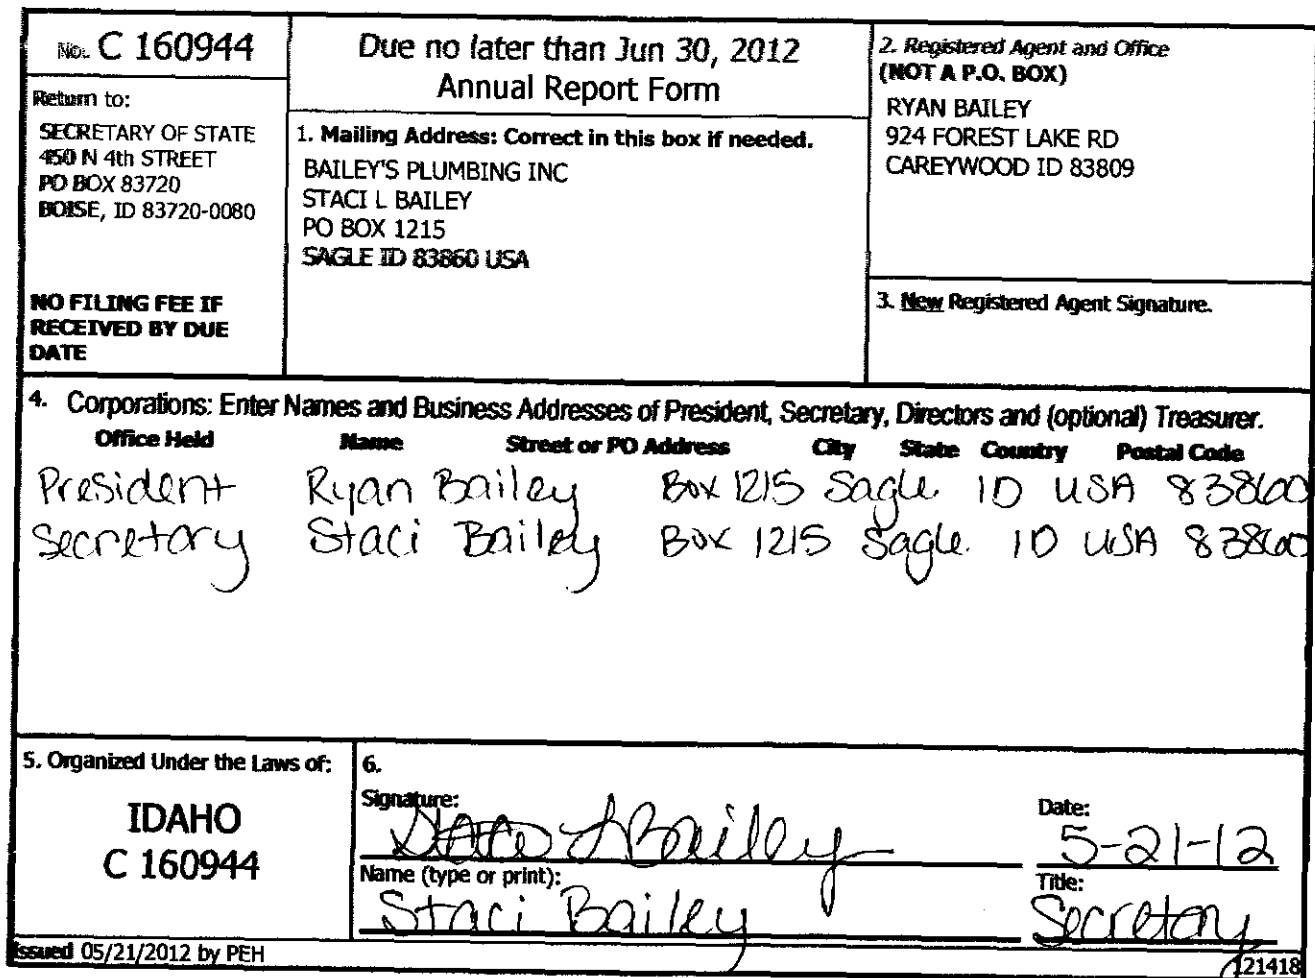 No. C 160944
Return to:
SECRETARY OF STATE
450 N 4th STREET
PO BOX 83720
BOISE, ID 83720-0080
NO FILING FEE IF
RECEIVED BY DUE
DATE
Due no later than Jun 30, 2012
Annual Report Form
1. Mailing Address: Correct in this box if needed.
BAILEY'S PLUMBING INC
STACI L BAILEY
PO BOX 1215
SAGLE ID 83860 USA
2. Registered Agent and Office
(NOT A P.O. BOX)
RYAN BAILEY
924 FOREST LAKE RD
CAREYWOOD ID 83809
3. New Registered Agent Signature.
4. Corporations: Enter Names and Business Addresses of President, Secretary, Directors and (optional) Treasurer.
Office Held Name Street or PO Address City State Country Postal Code
President Ryan Bailey Box 1215 Sagle ID USA 83860
Secretary Staci Bailey Box 1215 Sagle. ID USA 83860
5. Organized Under the Laws of:
IDAHO
C 160944
6.
Signature: Staci L Bailey
Date: 5-21-12
Name (type or print): Staci Bailey
Title: Secretary
Issued 05/21/2012 by PEH
121418